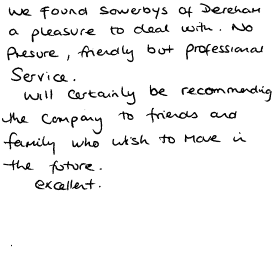 We found Sowerbys of Dereham
a pleasure to deal with. No
Presure, friendly but professional
Service.
Will certainly be recommending
the company to friends and
family who wish to move in
the future.
excellent.